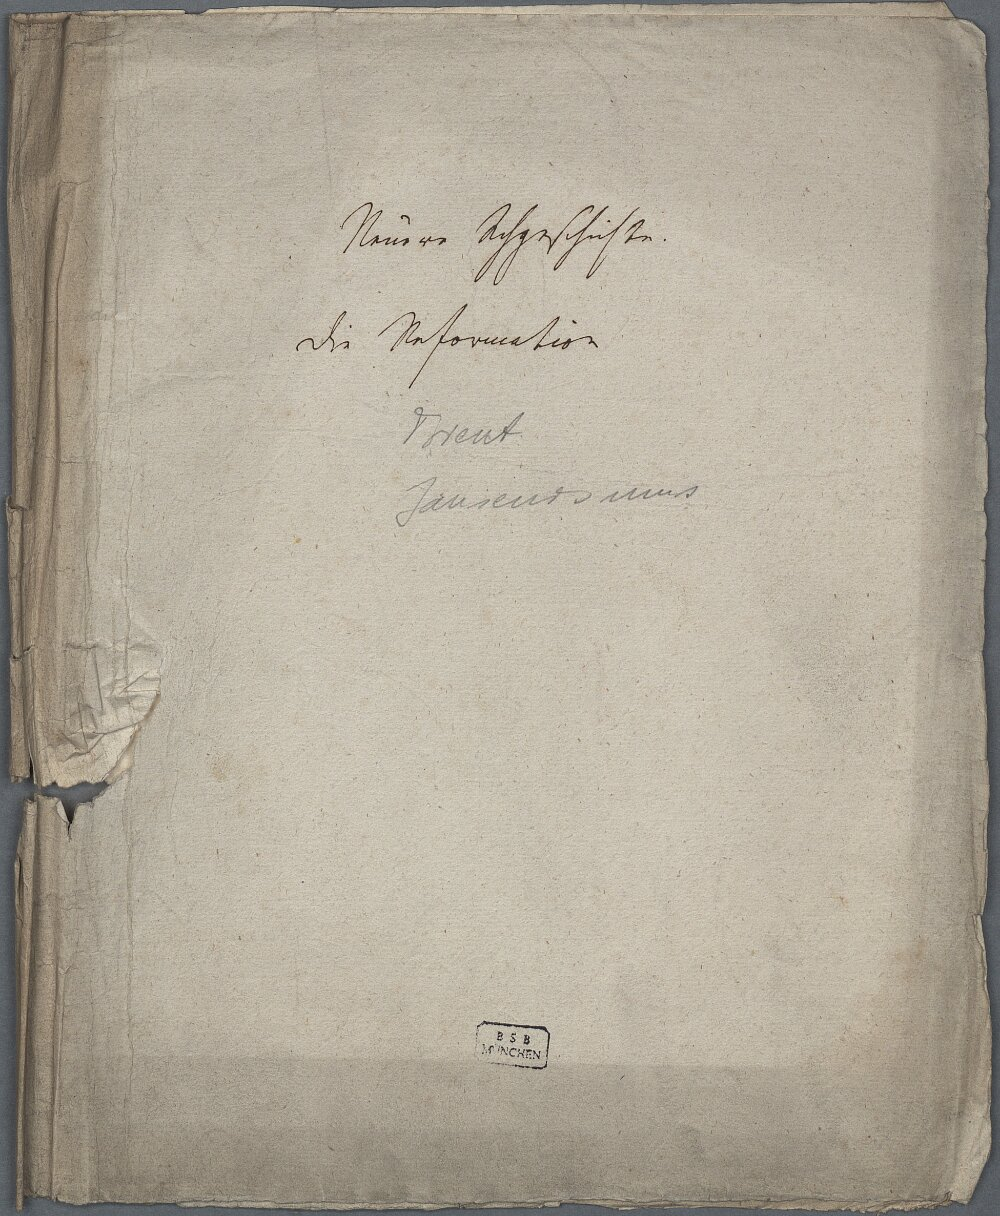 Neuere Kchgeschichte.
Die Reformation
Trent
Jansenismus
BSB
MÜNCHEN